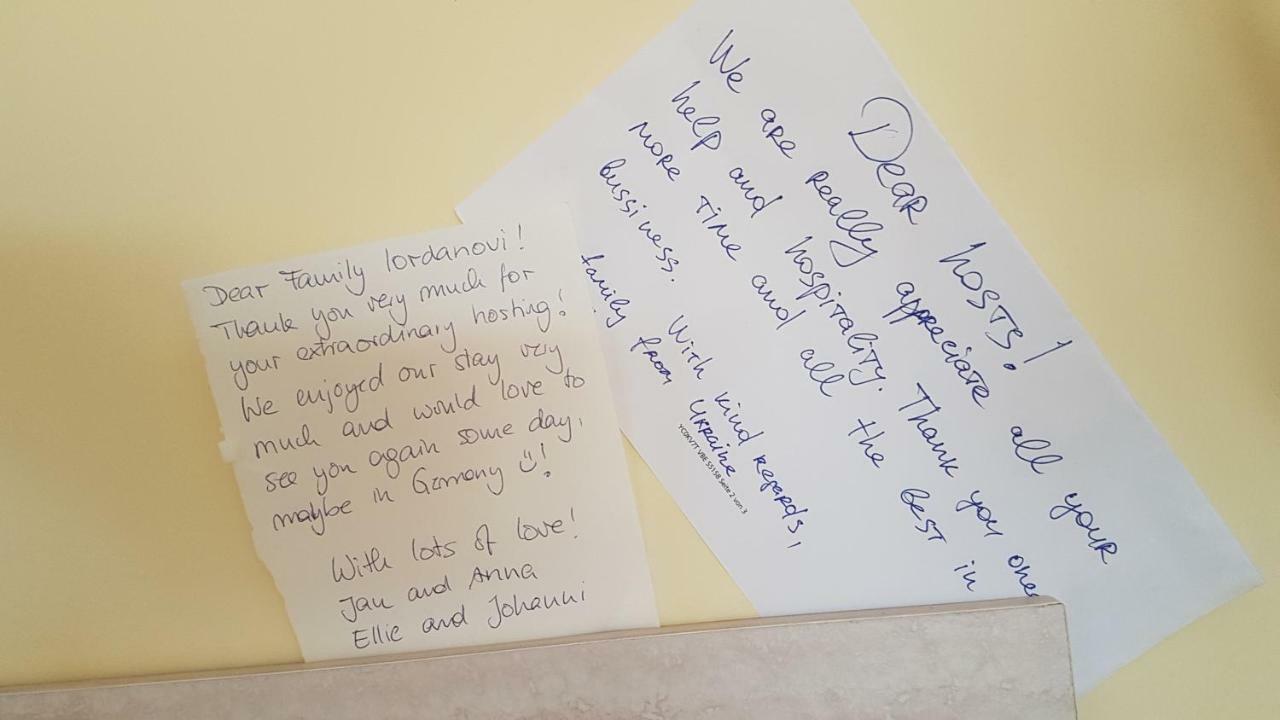 Dear Family Iordanovi!
Thank you very much for
your extraordinary hosting!
We enjoyed our stay very
much and would love to
see you again some day,
maybe in Germany ü!
With lots of love!
Jan and Anna
Ellie and Johanni
Dear hosts!
We are really appreciate all your
help and hospitality. Thank you one
more time and all the best in
bussiness. With kind regards,
family from Ukraine
YC0KV7T VBE 55158 Seite 2 von 3